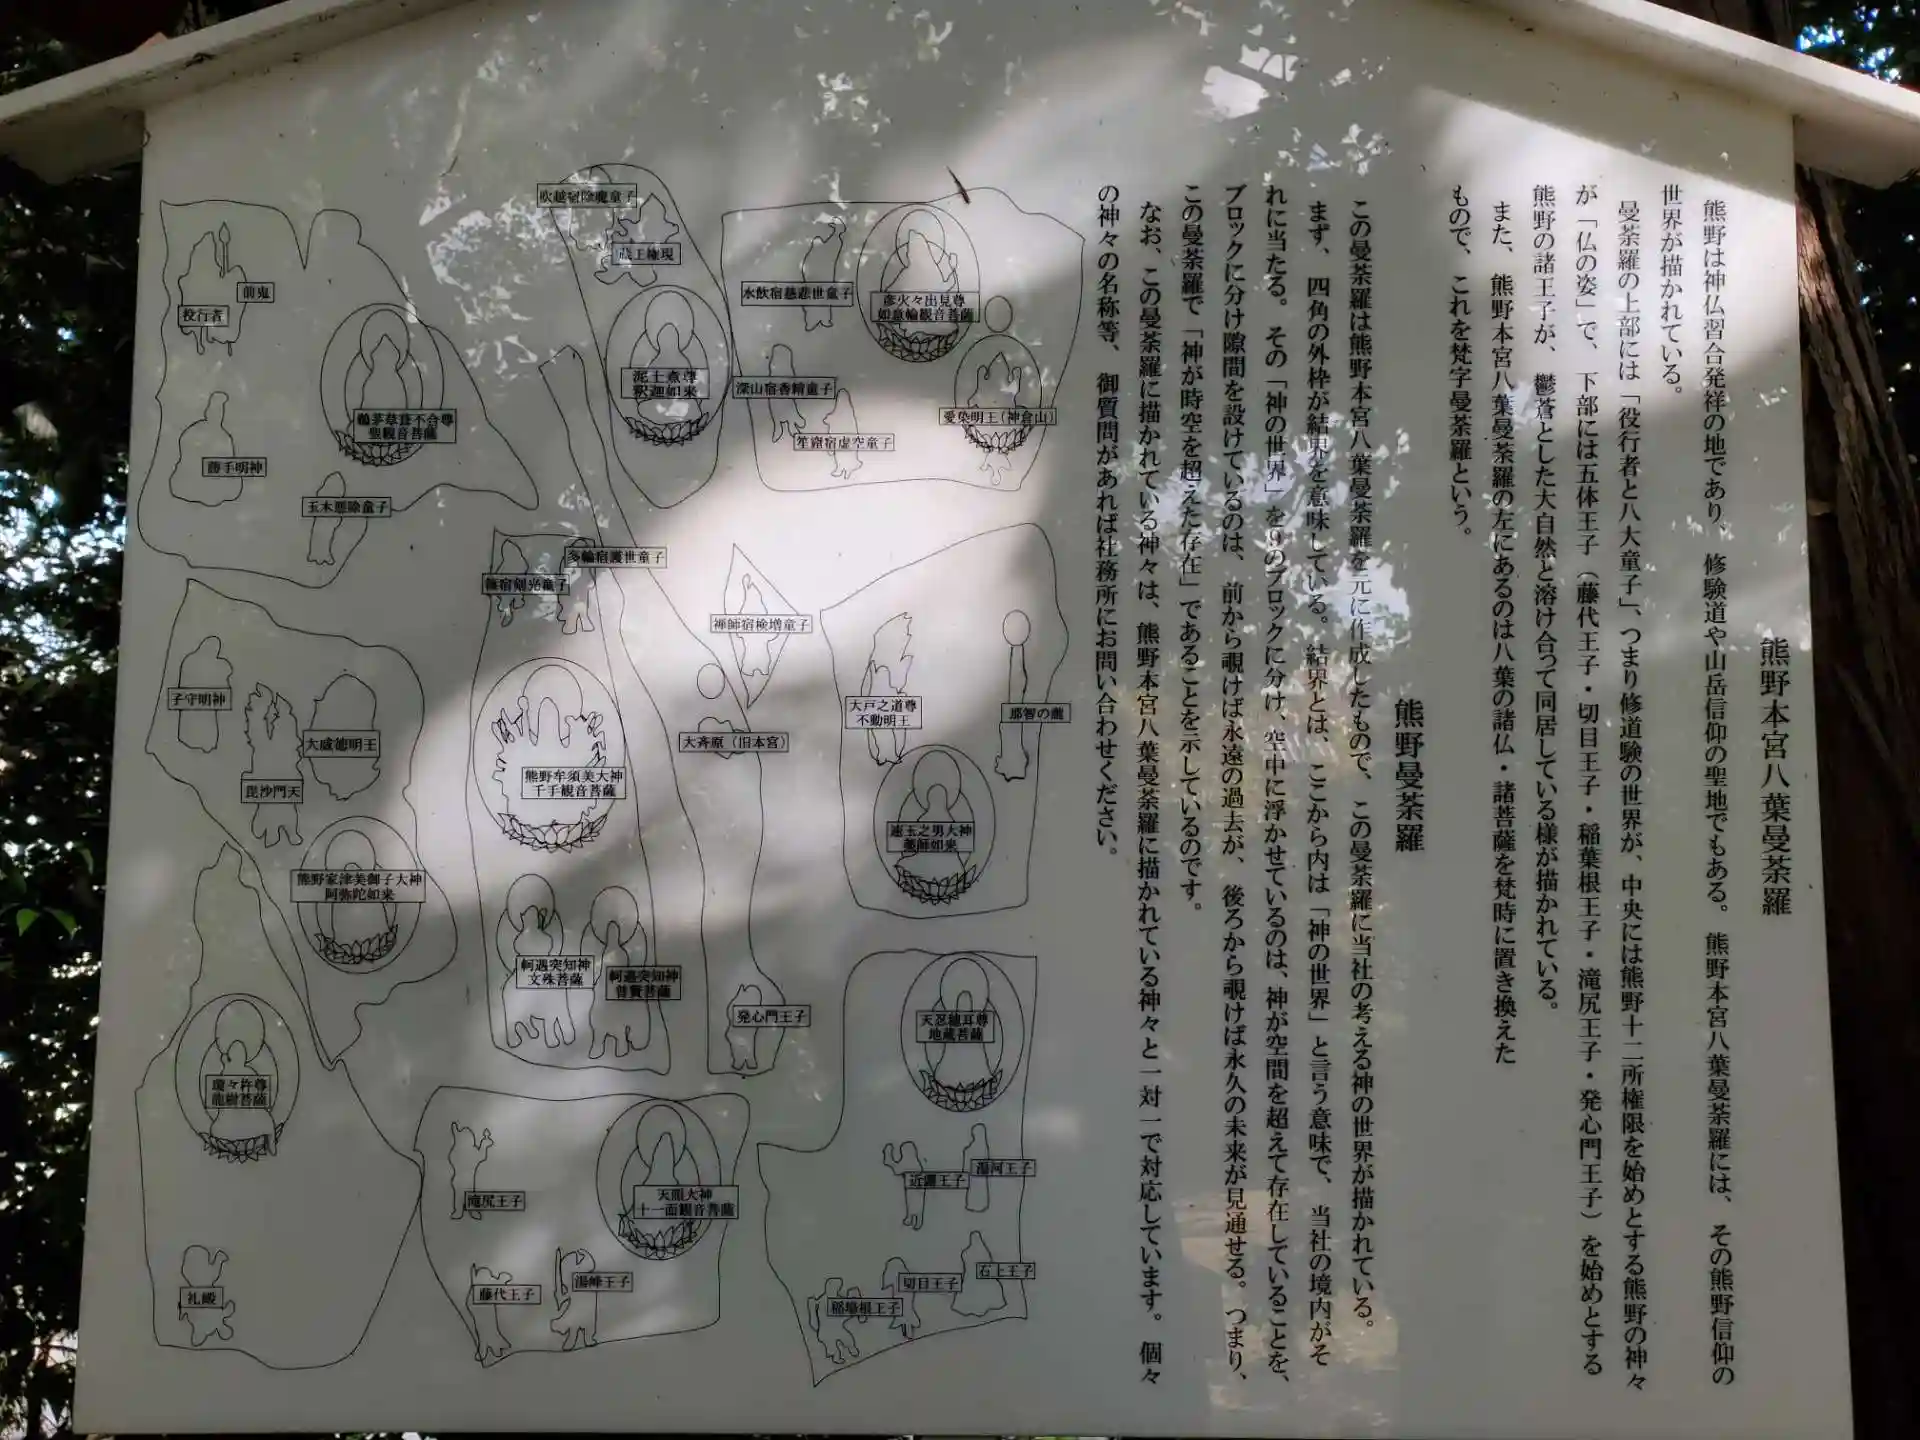 熊野本宮八葉曼荼羅
熊野は神仏習合発祥の地であり、修験道や山岳信仰の聖地でもある。熊野本宮八葉曼荼羅には、その熊野信仰の
世界が描かれている。
曼荼羅の上部には「役行者と八大童子」、つまり修道験の世界が、中央には熊野十二所権限を始めとする熊野の神々
が「仏の姿」で、下部には五体王子（藤代王子・切目王子・稲葉根王子・滝尻王子・発心門王子）を始めとする
熊野の諸王子が、鬱蒼とした大自然と溶け合って同居している様が描かれている。
また、熊野本宮八葉曼荼羅の左にあるのは八葉の諸仏・諸菩薩を梵時に置き換えた
もので、これを梵字曼荼羅という。
熊野曼荼羅
この曼荼羅は熊野本宮八葉曼荼羅を元に作成したもので、この曼荼羅に当社の考える神の世界が描かれている。
まず、四角の外枠が結界を意味している。結界とは、ここから内は「神の世界」と言う意味で、当社の境内がそ
れに当たる。その「神の世界」を９のブロックに分け、空中に浮かせているのは、神が空間を超えて存在していることを、
ブロックに分け隙間を設けているのは、前から覗けば永遠の過去が、後ろから覗けば永久の未来が見通せる。つまり、
この曼荼羅で「神が時空を超えた存在」であることを示しているのです。
なお、この曼荼羅に描かれている神々は、熊野本宮八葉曼荼羅に描かれている神々と一対一で対応しています。個々
の神々の名称等、御質問があれば社務所にお問い合わせください。
吹越宿除魔童子
蔵王権現
前鬼
役行者
水飲宿慈悲世童子
彦火々出見尊
如意輪観音菩薩
泥土煮尊
釈迦如来
深山宿香精童子
愛染明王(神倉山)
笙窟宿虚空童子
鵜茅草葺不合尊
聖観音菩薩
勝手明神
玉木悪除童子
多輪宿護世童子
篠宿剣光童子
禅師宿検増童子
子守明神
大威徳明王
毘沙門天
大斎原（旧本宮）
大戸之道尊
不動明王
那智の瀧
熊野牟須美大神
千手観音菩薩
速玉之男大神
薬師如来
熊野家津美御子大神
阿弥陀如来
軻遇突知神
文殊菩薩
軻遇突知神
普賢菩薩
発心門王子
天忍穂耳尊
地蔵菩薩
瓊々杵尊
龍樹菩薩
滝尻王子
天照大神
十一面観音菩薩
近露王子
湯河王子
礼殿
藤代王子
湯峰王子
稲葉根王子
切目王子
石上王子